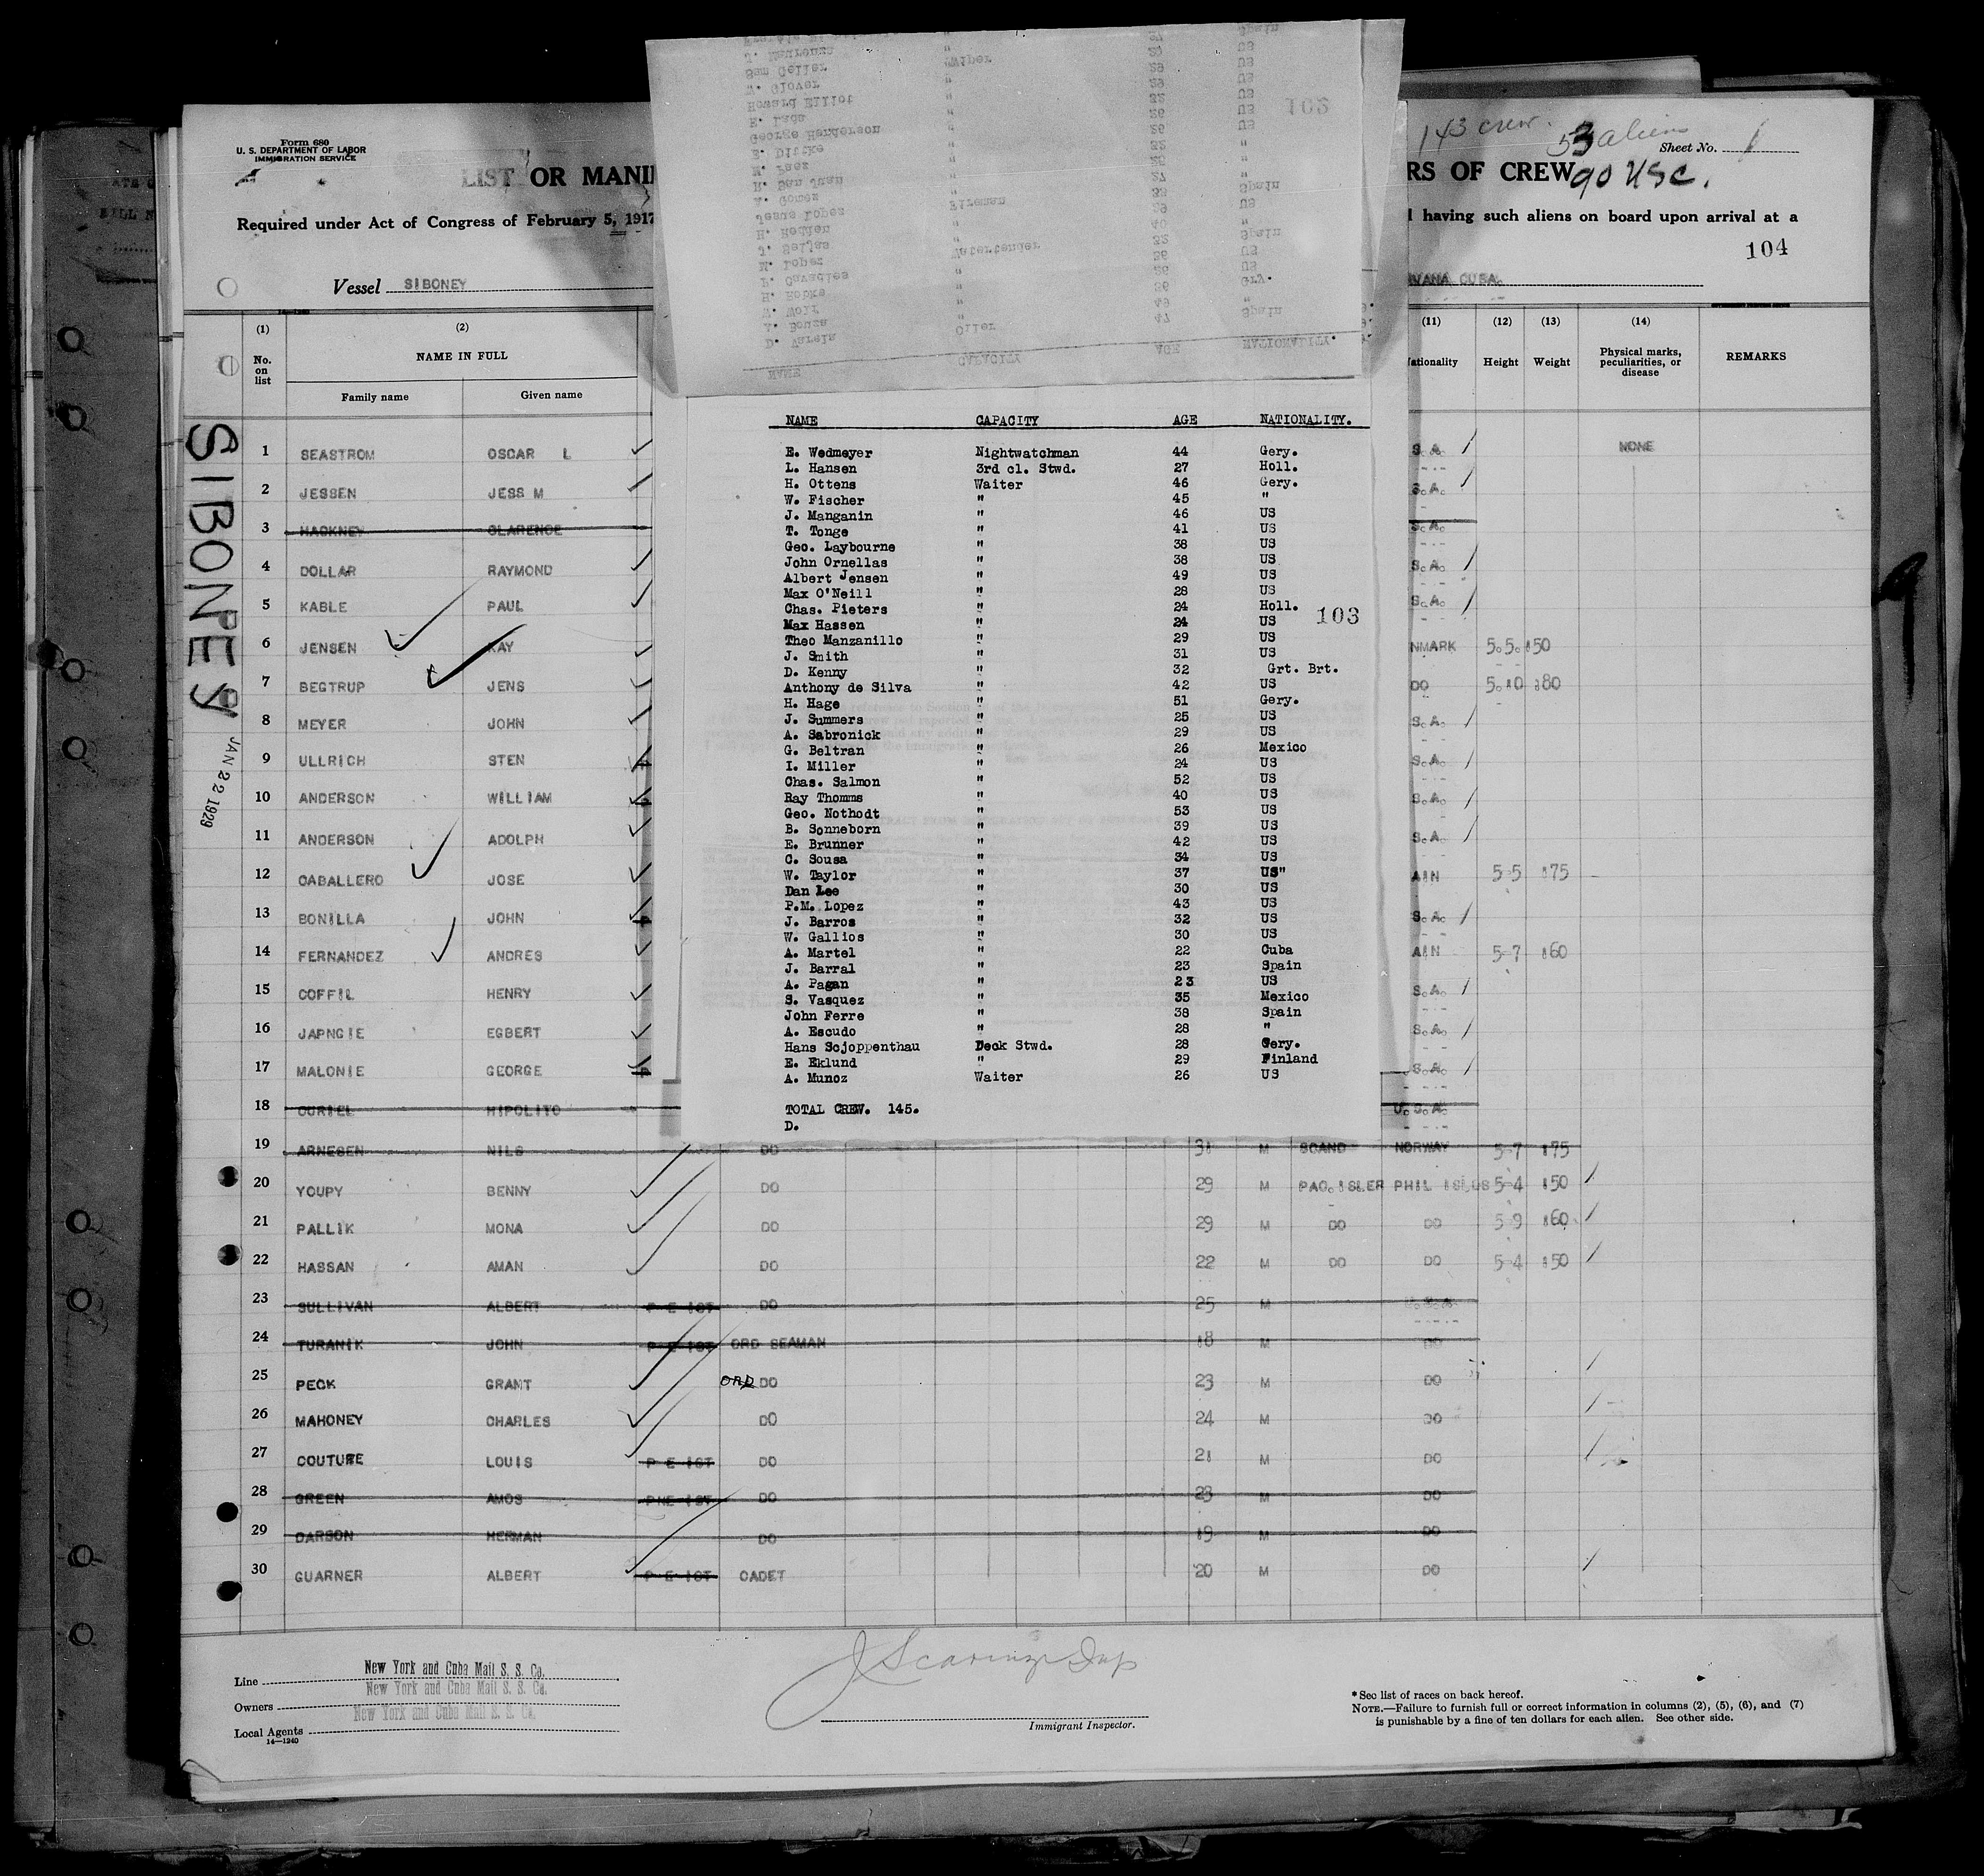 Form 680
U. S. DEPARTMENT OF LABOR
IMMIGRATION SERVICE
LIST OR MANI
RS OF CREW
143 crew.
53 aliens
90 USC.
Sheet No. 1
Required under Act of Congress of February 5, 1917
having such aliens on board upon arrival at a
104
Vessel SIBONEY
VANA CUBA.
SIBONEY
JAN 22 1929
(1) (2) (11) (12) (13) (14)
No. on list NAME IN FULL ationality Height Weight Physical marks, peculiarities, or disease REMARKS
Family name Given name
1 SEASTROM OSCAR L S.A. NONE
2 JESSEN JESS M S.A.
3 HACKNEY CLARENCE S.A.
4 DOLLAR RAYMOND S.A.
5 KABLE PAUL S.A.
6 JENSEN KAY NMARK 5.5. 150
7 BEGTRUP JENS DO 5.10 180
8 MEYER JOHN S.A.
9 ULLRICH STEN S.A.
10 ANDERSON WILLIAM S.A.
11 ANDERSON ADOLPH S.A.
12 CABALLERO JOSE AIN 5-5 175
13 BONILLA JOHN S.A.
14 FERNANDEZ ANDRES AIN 5-7 160
15 COFFIL HENRY S.A.
16 JAPNGIE EGBERT S.A.
17 MALONIE GEORGE S.A.
18 CURIEL HIPOLITO U.S.A.
19 ARNESEN NILS DO 31 M SCAND NORWAY 5-7 175
20 YOUPY BENNY DO 29 M PAC.ISLER PHIL ISLDS 5-4 150
21 PALLIK MONA DO 29 M DO DO 5-9 160
22 HASSAN AMAN DO 22 M DO DO 5-4 150
23 SULLIVAN ALBERT P E IST DO 25 M U.S.A.
24 TURANIK JOHN P E IST ORD SEAMAN 18 M DO
25 PECK GRANT ORD DO 23 M DO
26 MAHONEY CHARLES DO 24 M DO
27 COUTURE LOUIS P E IST DO 21 M DO
28 GREEN AMOS P E IST DO 23 M DO
29 DARSON HERMAN DO 19 M DO
30 GUARNER ALBERT P E IST CADET 20 M DO
NAME CAPACITY AGE NATIONALITY.
D. Varela Oiler 47 Spain
A. Souza " 49 "
W. Wolf " 36 Gry.
M. Lopez Watertender 36 US
J. Seijas " 32 Spain
H. Hedden " 40 "
Jesus Lopez Fireman 29 US
A. Gomez " 33 Spain
R. San Juan " 27 "
George Henderson " 26 US
E. Lada " 26 US
Howard Elliot " 32 US
W. Glover " 29 US
Sam Geller Wiper 29 US
103
NAME CAPACITY AGE NATIONALITY.
E. Wedmeyer Nightwatchman 44 Gery.
L. Hansen 3rd cl. Stwd. 27 Holl.
H. Ottens Waiter 46 Gery.
W. Fischer " 45 "
J. Manganin " 46 US
T. Tonge " 41 US
Geo. Laybourne " 38 US
John Ornellas " 38 US
Albert Jensen " 49 US
Max O'Neill " 28 US
Chas. Pieters " 24 Holl.
Max Hassen " 24 US
103
Theo Manzanillo " 29 US
J. Smith " 31 US
D. Kenny " 32 Grt. Brt.
Anthony de Silva " 42 US
H. Hage " 51 Gery.
J. Summers " 25 US
A. Sabronick " 29 US
G. Beltran " 26 Mexico
I. Miller " 24 US
Chas. Salmon " 52 US
Ray Thomms " 40 US
Geo. Nothodt " 53 US
B. Sonneborn " 39 US
E. Brunner " 42 US
C. Sousa " 34 US
W. Taylor " 37 US"
Dan Lee " 30 US
P.M. Lopez " 43 US
J. Barros " 32 US
W. Gallios " 30 US
A. Martel " 22 Cuba
J. Barral " 23 Spain
A. Pagan " 23 US
S. Vasquez " 35 Mexico
John Ferre " 38 Spain
A. Escudo " 28 "
Hans Scjoppenthau Deck Stwd. 28 Gery.
E. Eklund " 29 Finland
A. Munoz Waiter 26 US
TOTAL CREW. 145.
D.
Line New York and Cuba Mail S. S. Co.
Owners New York and Cuba Mail S. S. Co.
Local Agents New York and Cuba Mail S. S. Co.
14—1240
Immigrant Inspector.
* See list of races on back hereof.
NOTE.—Failure to furnish full or correct information in columns (2), (5), (6), and (7)
is punishable by a fine of ten dollars for each alien. See other side.